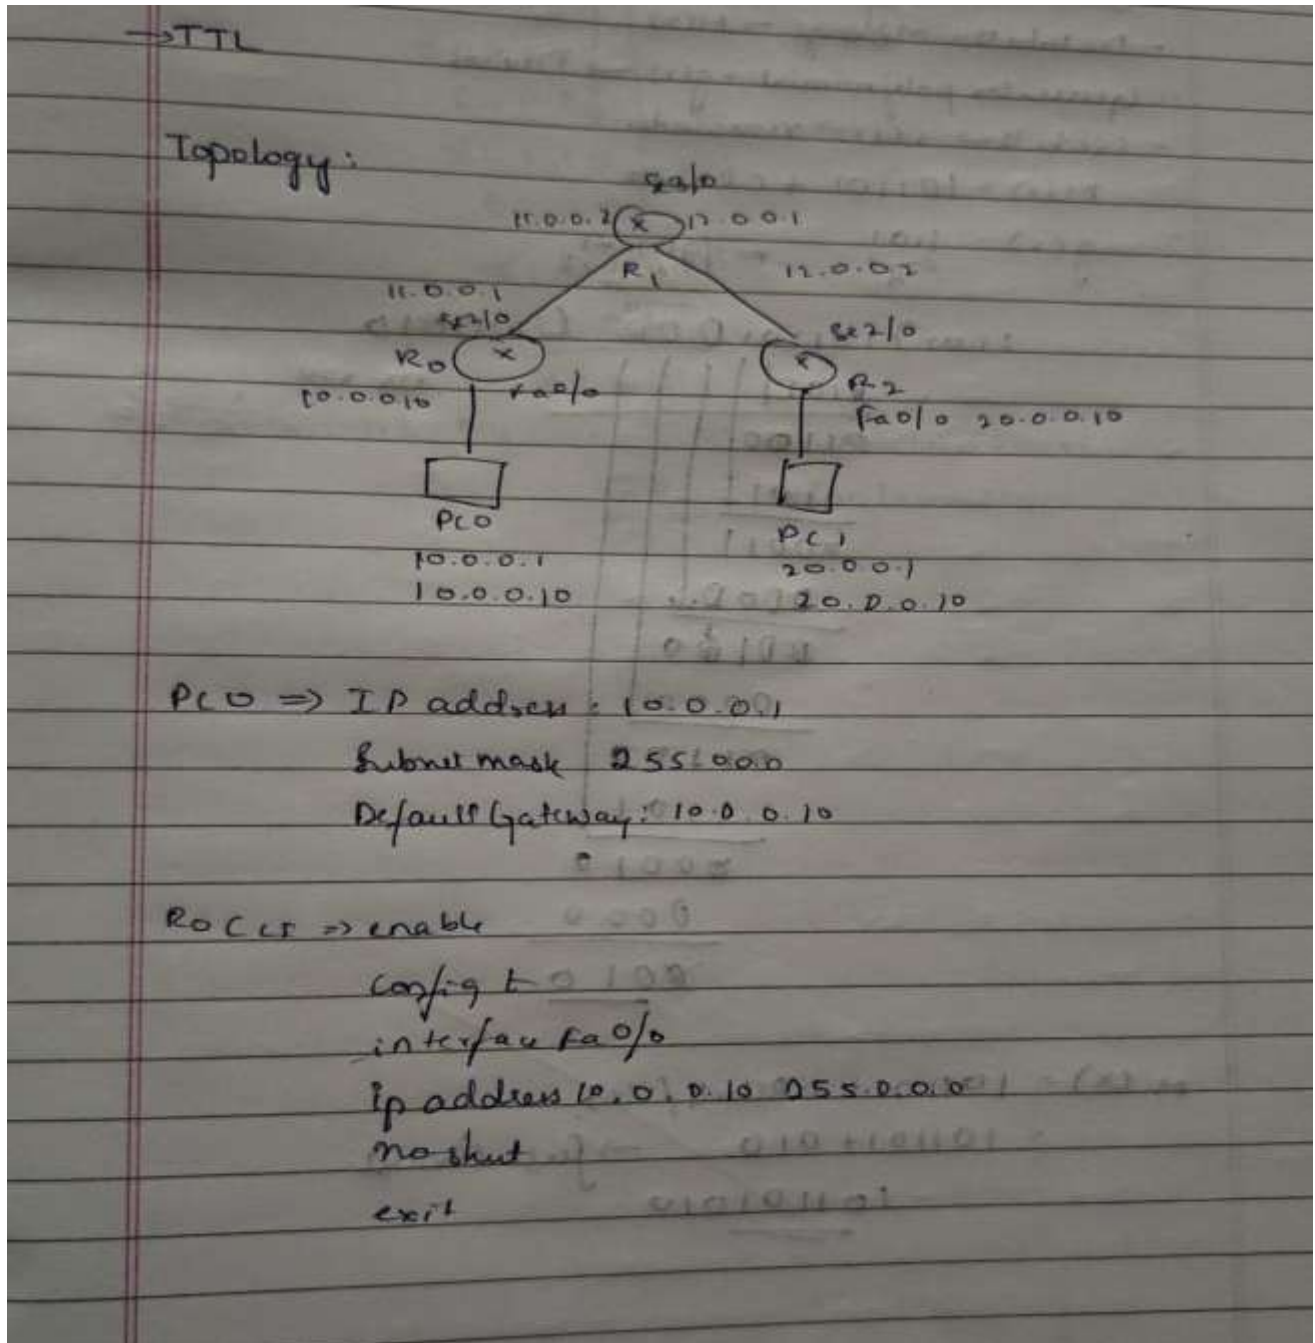 →TTL
Topology:
11.0.0.2 x 12.0.0.1
R1
12.0.0.2
11.0.0.1
se2/0
se2/0
R0 x
x R2
10.0.010 Fa0/0
Fa0/0 20.0.0.10
PC0
PC1
10.0.0.1
20.0.0.1
10.0.0.10
20.0.0.10
PC0 => IP address: 10.0.0.1
Subnet mask 255.0.0.0
Default Gateway: 10.0.0.10
R0 CLI => enable
config t
interface Fa0/0
ip address 10.0.0.10 255.0.0.0
no shut
exit